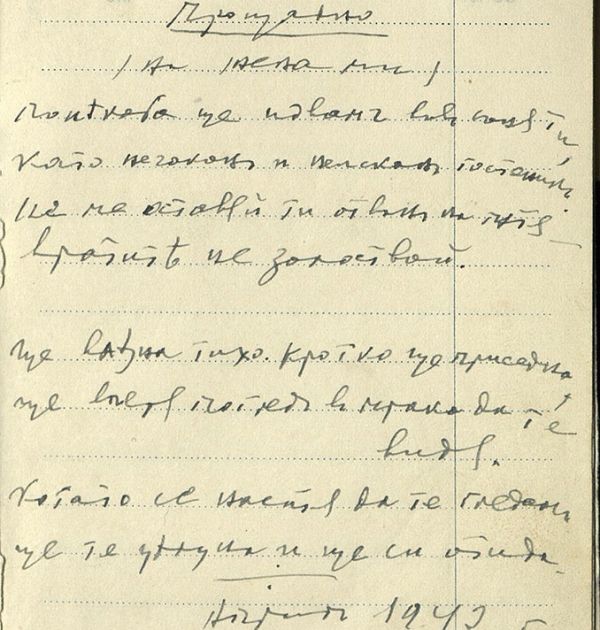 Прощално
/на жена ми/
понѣкога ще идвамъ въвъ съня ти,
като нечаканъ и неисканъ гостенинъ.
Не ме оставяй ти отвънъ на пѫтя –
вратитѣ не залоствай.
Ще влѣзна тихо. Кротко ще приседна,
ще вперя погледъ в мрака да те
видя.
Когато се наситя да те гледамъ
ще те цѣлуна и ще си отида.